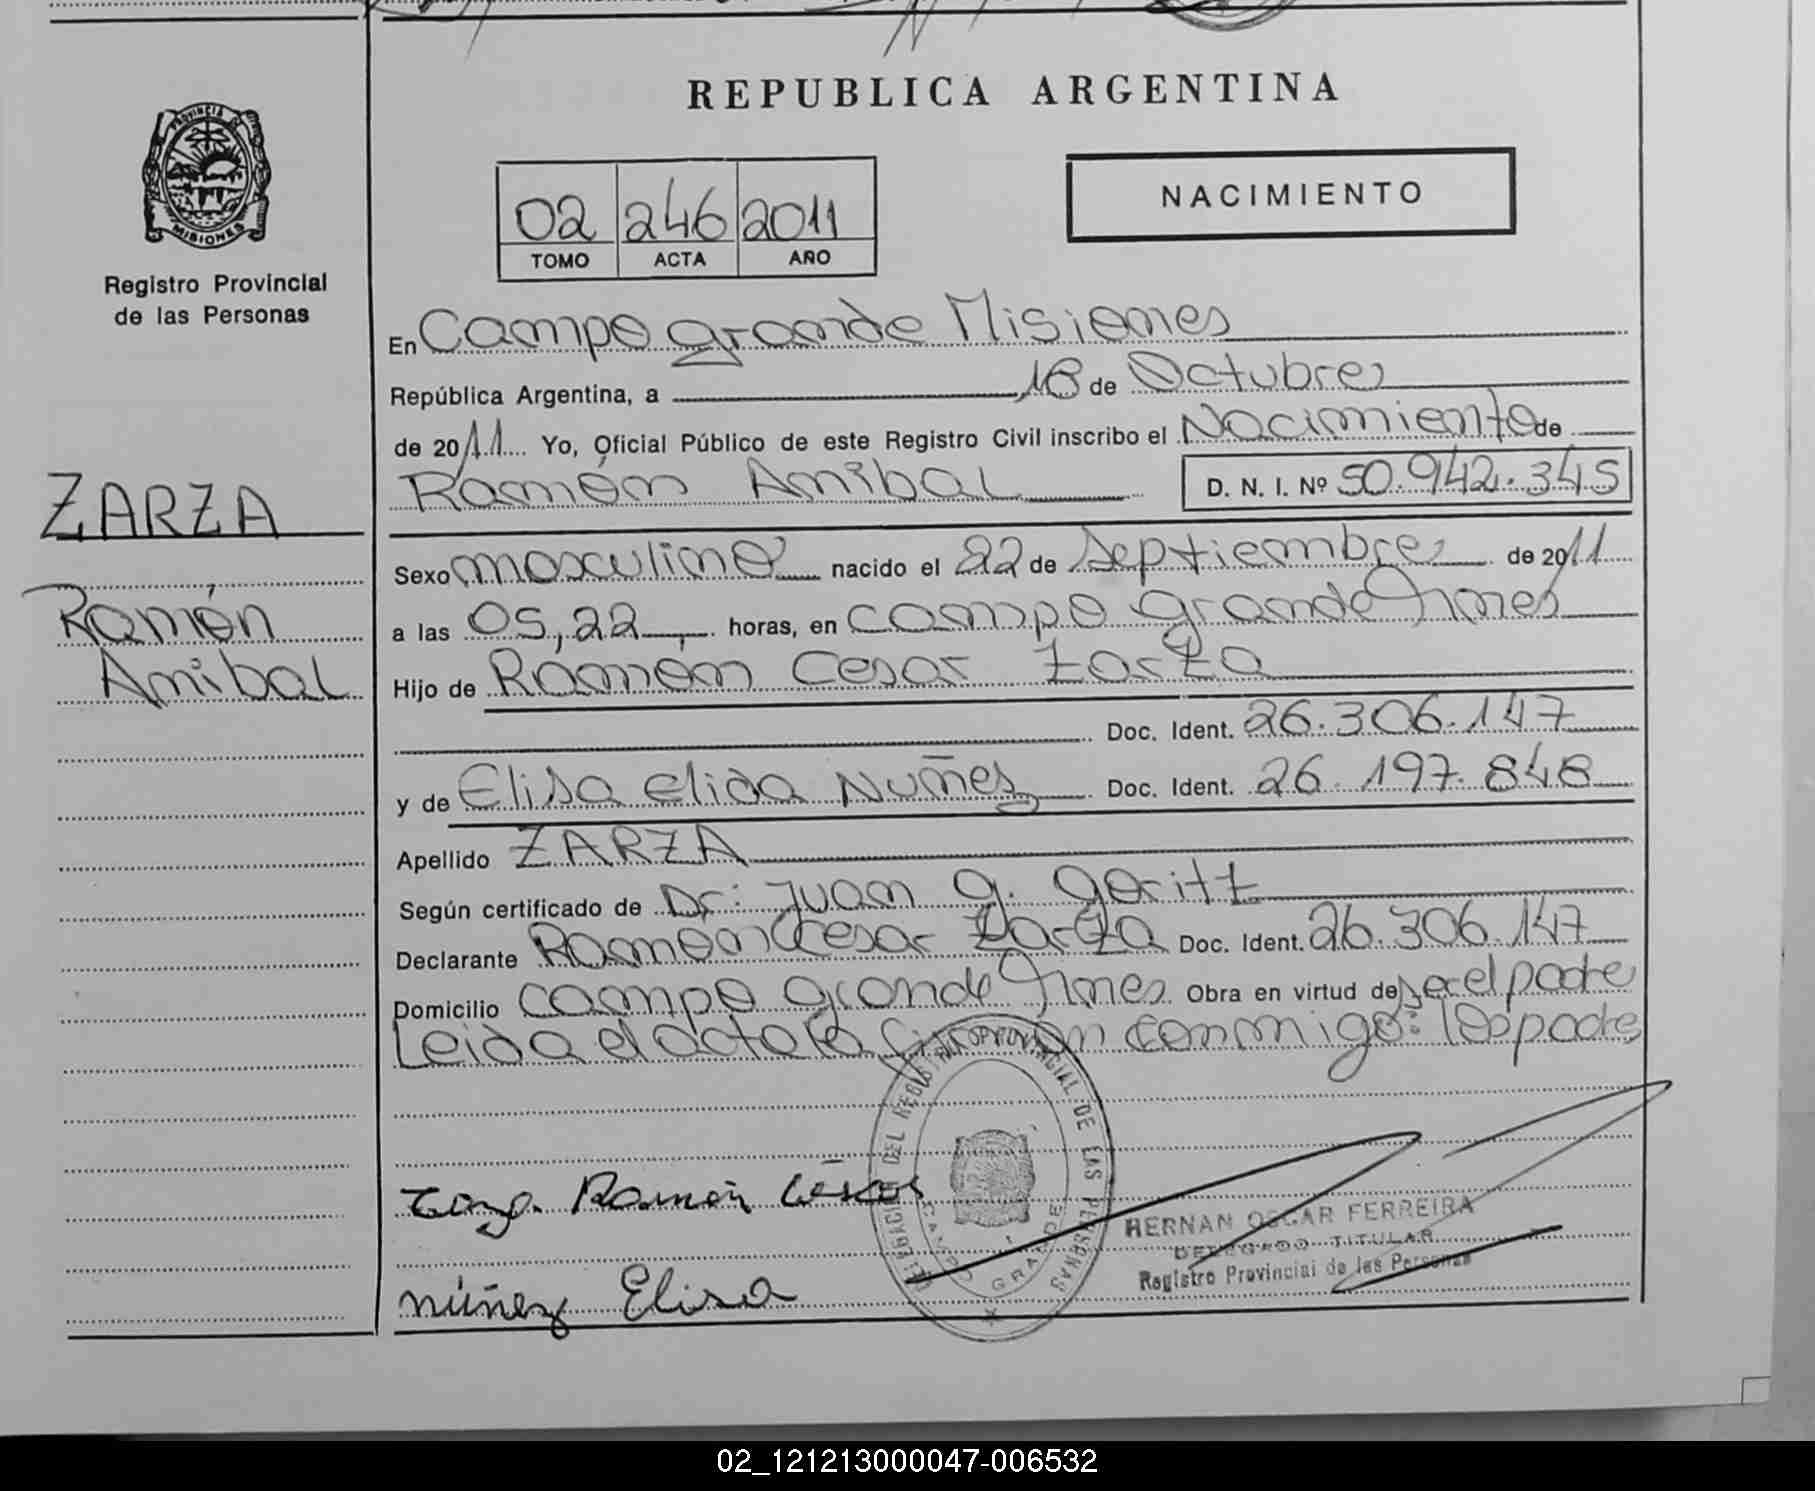 REPUBLICA ARGENTINA
PROVINCIA DE
MISIONES
Registro Provincial
de las Personas
02 246 2011
TOMO ACTA AÑO
NACIMIENTO
En Campo grande Misiones
República Argentina, a 18 de Octubre
de 2011 Yo, Oficial Público de este Registro Civil inscribo el Nacimiento de
Ramón Anibal D. N. I. Nº 50.942.345
ZARZA
Ramón
Anibal
Sexo masculino nacido el 22 de Septiembre de 2011
a las 05,22 horas, en campo grande Mnes
Hijo de Ramón Cesar Zarza
Doc. Ident. 26.306.147
y de Elisa elida Nuñes Doc. Ident. 26.197.848
Apellido ZARZA
Según certificado de Dr: Juan g. goritz
Declarante Ramón Cesar Zarza Doc. Ident. 26.306.147
Domicilio campo grande Mnes Obra en virtud de ser el padre
Leida el acta la firman conmigo: los padres
Zarza Ramón César
Núñez Elisa
DELEGACION DEL REGISTRO PROVINCIAL DE LAS PERSONAS
CAMPO GRANDE
HERNAN OSCAR FERREIRA
DELEGADO TITULAR
Registro Provincial de las Personas
02_121213000047-006532